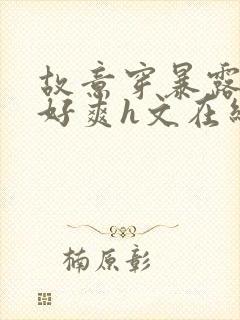 故意穿暴露
好爽h文在线
楠原彰